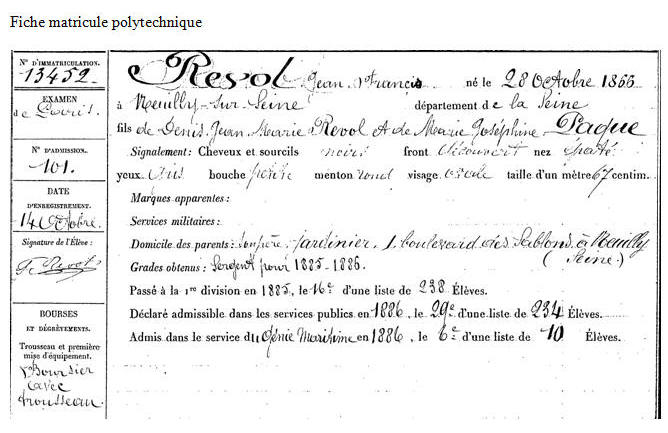 Fiche matricule polytechnique
N° D'IMMATRICULATION.
13452.
EXAMEN
de Paris.
N° D'ADMISSION.
101.
DATE
D'ENREGISTREMENT.
14 Octobre.
Signature de l'Élève :
F. Revol
BOURSES
ET DÉGRÈVEMENTS.
Trousseau et première
mise d'équipement.
Boursier
avec
trousseau
Revol Jean Francis né le 28 Octobre 1866
à Neuilly-sur-Seine département de la Seine
fils de Denis Jean Marie Revol et de Marie Joséphine Paque
Signalement : Cheveux et sourcils noirs front découvert nez épaté
yeux gris bouche petite menton rond visage ovale taille d'un mètre 67 centim.
Marques apparentes :
Services militaires :
Domicile des parents : Son père : jardinier, 1, boulevard des Sablons, à Neuilly
(Seine.)
Grades obtenus : Sergent pour 1885-1886.
Passé à la 1re division en 1885, le 16e d'une liste de 238 Élèves.
Déclaré admissible dans les services publics en 1886, le 29e d'une liste de 234 Élèves.
Admis dans le service du Génie Maritime en 1886, le 6e d'une liste de 10 Élèves.